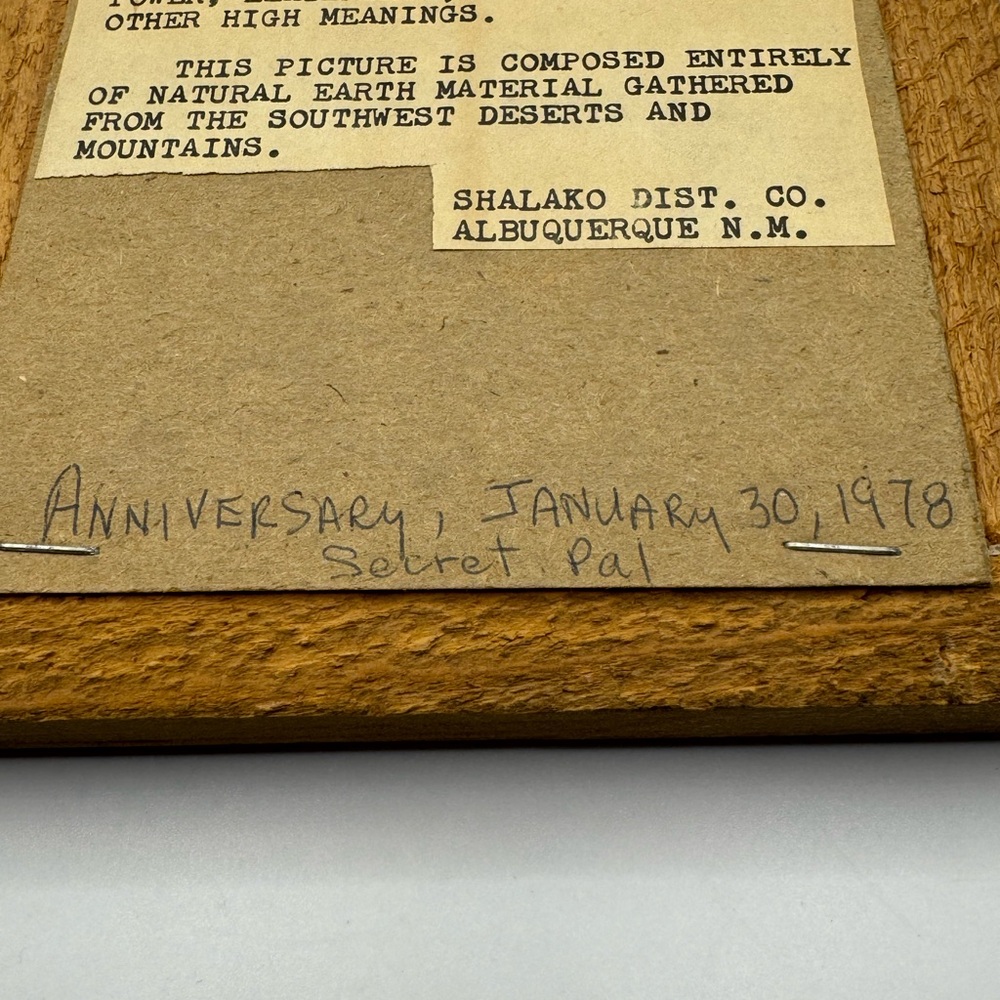 OTHER HIGH MEANINGS.
THIS PICTURE IS COMPOSED ENTIRELY
OF NATURAL EARTH MATERIAL GATHERED
FROM THE SOUTHWEST DESERTS AND
MOUNTAINS.
SHALAKO DIST. CO.
ALBUQUERQUE N.M.
ANNIVERSARY, JANUARY 30, 1978
Secret Pal